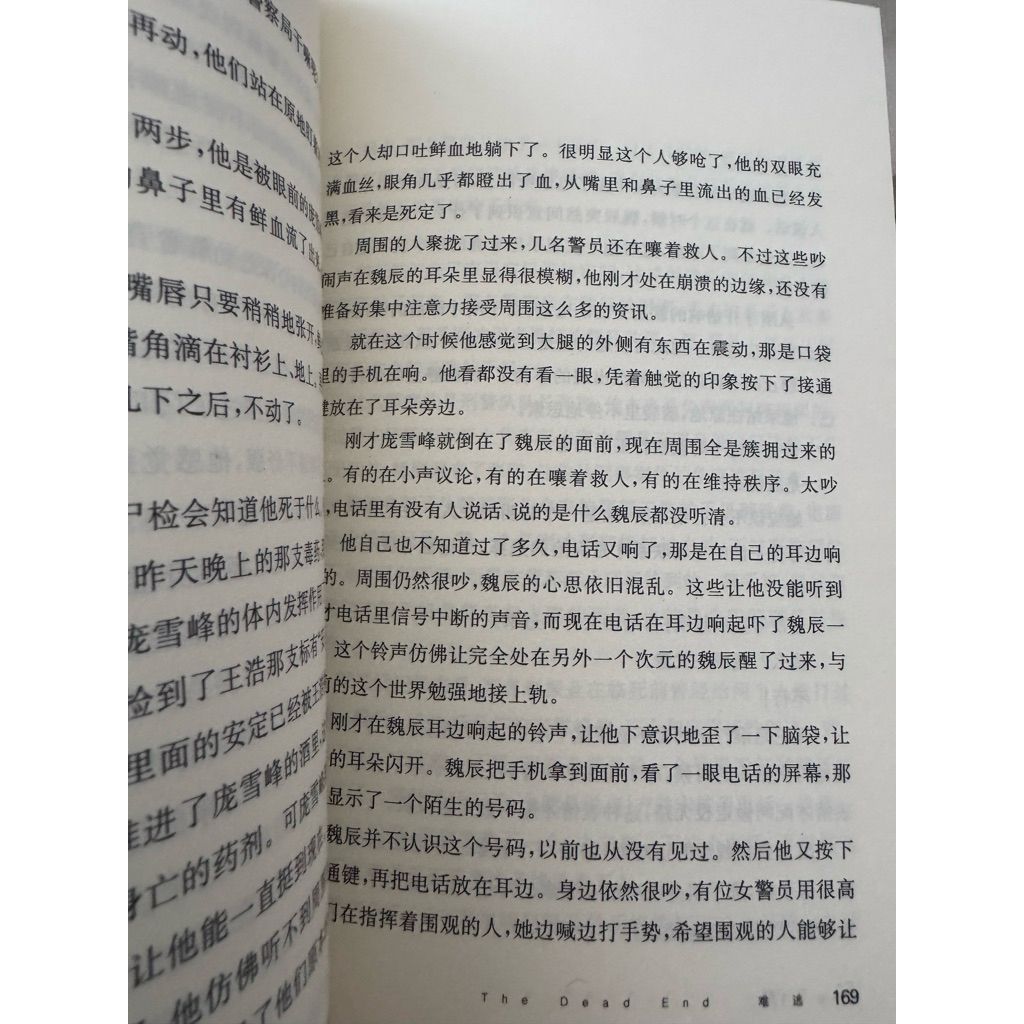 警察局
再动，他们站在原地
两步，他是被眼前的
鼻子里有鲜血流了出
嘴唇只要稍稍地张开
角滴在衬衫上、地上，
几下之后，不动了。
尸检会知道他死于什么
昨天晚上的那支毒
庞雪峰的体内发挥作用
捡到了王浩那支标有“安
里面的安定已经被王
进了庞雪峰的酒里
身亡的药剂。可庞雪
让他能一直挺到现
他仿佛听不到周
了他们
这个人却口吐鲜血地躺下了。很明显这个人够呛了，他的双眼充
满血丝，眼角几乎都瞪出了血，从嘴里和鼻子里流出的血已经发
黑，看来是死定了。
周围的人聚拢了过来，几名警员还在嚷着救人。不过这些吵
闹声在魏辰的耳朵里显得很模糊，他刚才处在崩溃的边缘，还没有
准备好集中注意力接受周围这么多的资讯。
就在这个时候他感觉到大腿的外侧有东西在震动，那是口袋
里的手机在响。他看都没有看一眼，凭着触觉的印象按下了接通
键放在了耳朵旁边。
刚才庞雪峰就倒在了魏辰的面前，现在周围全是簇拥过来的
。有的在小声议论，有的在嚷着救人，有的在维持秩序。太吵
，电话里有没有人说话、说的是什么魏辰都没听清。
他自己也不知道过了多久，电话又响了，那是在自己的耳边响
的。周围仍然很吵，魏辰的心思依旧混乱。这些让他没能听到
才电话里信号中断的声音，而现在电话在耳边响起吓了魏辰一
这个铃声仿佛让完全处在另外一个次元的魏辰醒了过来，与
的这个世界勉强地接上轨。
刚才在魏辰耳边响起的铃声，让他下意识地歪了一下脑袋，让
的耳朵闪开。魏辰把手机拿到面前，看了一眼电话的屏幕，那
显示了一个陌生的号码。
魏辰并不认识这个号码，以前也从没有见过。然后他又按下
通键，再把电话放在耳边。身边依然很吵，有位女警员用很高
门在指挥着围观的人，她边喊边打手势，希望围观的人能够让
The Dead End 难逃 169